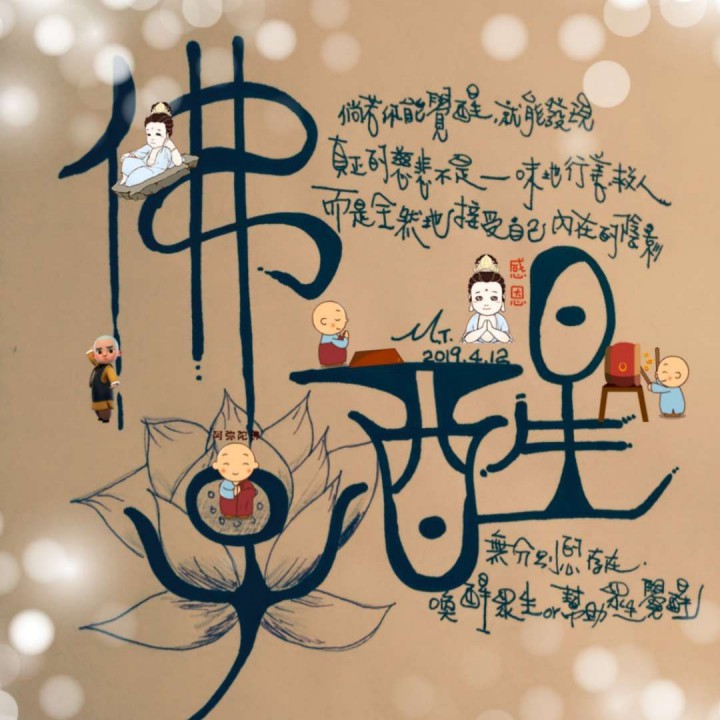 佛
倘若你能覺醒,就能發現
真正的慈悲不是一味地行善救人
而是全然地接受自己內在的陰影
感
恩
M.T.
2019.4.12
醒
阿弥陀佛
無分別的存在.
喚醒眾生or幫助眾生覺醒